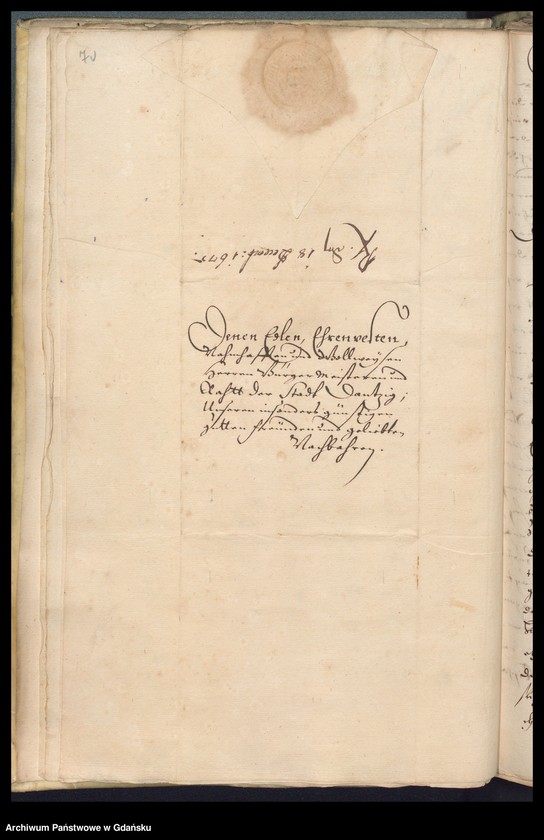 70
R. den 18 Decemb: 1675.
Denen Edlen, Ehrenvesten,
Nahmhafften und Wollweysen
Herren Bürgermeisteren und
Rahtt der Stadt Dantzig;
Unseren insonders günstigen
gutten freunden und geliebten
Nachbahren.
Archiwum Państwowe w Gdańsku